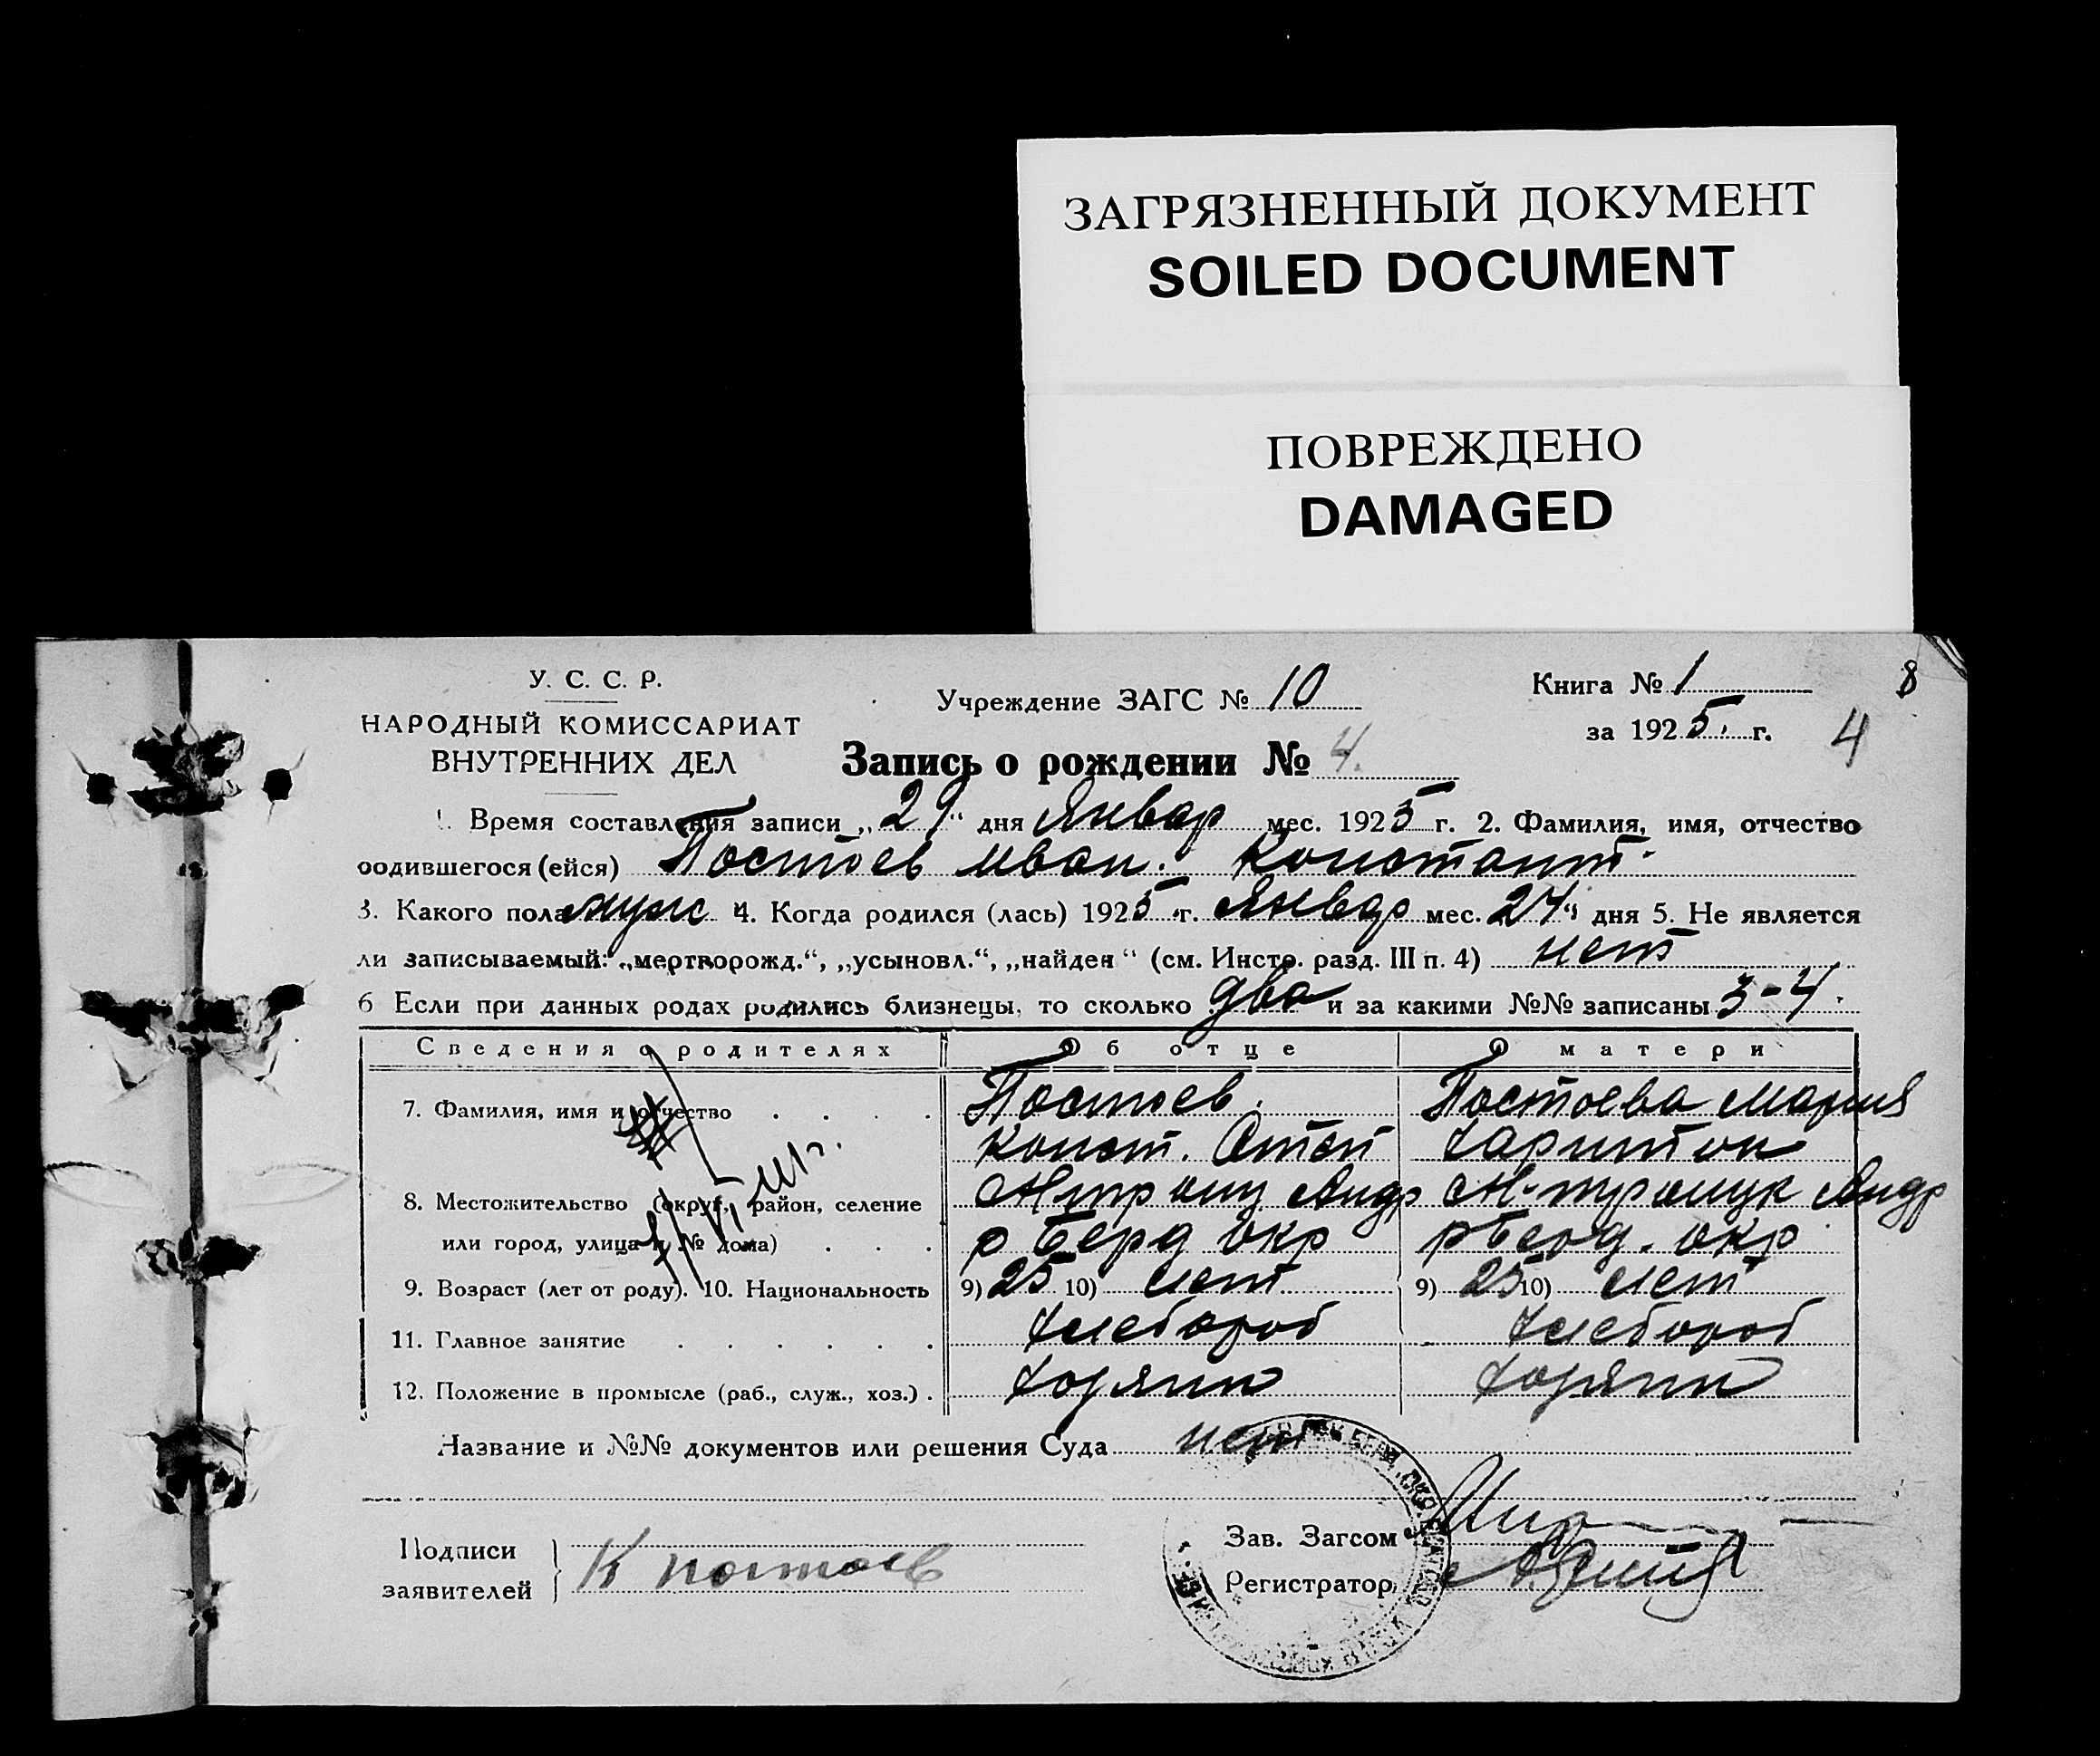 ЗАГРЯЗНЕННЫЙ ДОКУМЕНТ
SOILED DOCUMENT
ПОВРЕЖДЕНО
DAMAGED
У. С. С. Р.
НАРОДНЫЙ КОМИССАРИАТ
ВНУТРЕННИХ ДЕЛ
Учреждение ЗАГС № 10
Книга № 1
8
за 1925 г.
4
Запись о рождении № 4.
1. Время составления записи „29“ дня Январ мес. 1925 г. 2. Фамилия, имя, отчество
родившегося (ейся) Постоев Иван. Констант  
3. Какого пола муж 4. Когда родился (лась) 1925 г. Январ мес. 24“ дня 5. Не является
ли записываемый: „мертворожд.“, „усыновл.“, „найден“ (см. Инстр. разд. III п. 4) нет
6 Если при данных родах родились близнецы, то сколько два и за какими №№ записаны 3-4.
Сведения о родителях Об отце О матери
7. Фамилия, имя и отчество Постоев. Постоева Мария
Конст. Харитон
8. Местожительство (округ, район, селение Андр Андр
или город, улица и № дома) р Берд окр р Берд. окр
9. Возраст (лет от роду). 10. Национальность 9) 25 10) 9) 25 10)
11. Главное занятие Хлебороб Хлебороб
12. Положение в промысле (раб., служ., хоз.) Хозяин Хозяин
Название и №№ документов или решения Суда нет
Подписи
заявителей К Постоев
Зав. Загсом
Регистратор